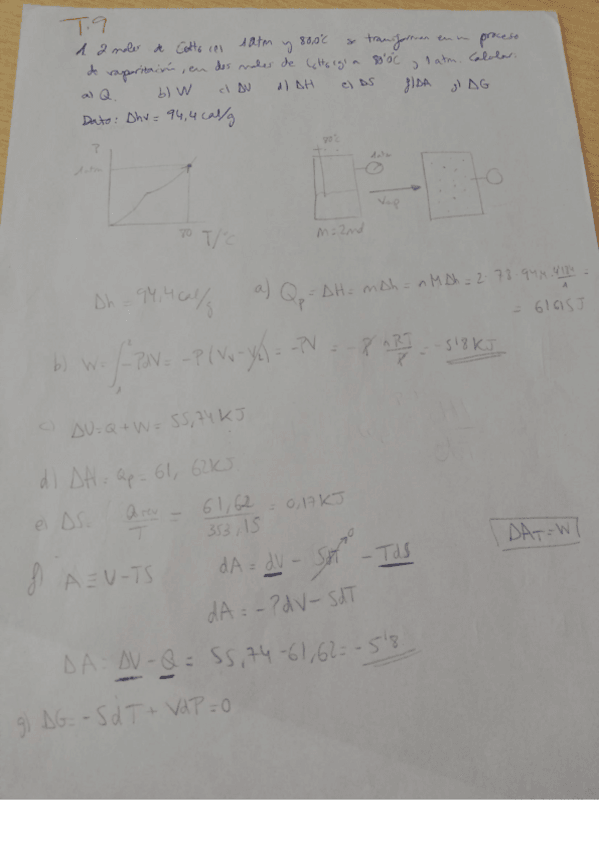 T.9
1. 2 moles de C6H6 (l) 1atm y 80,0ºC se transforman en un proceso
de vaporización, en dos moles de C6H6 (g) a 80'0ºC y 1 atm. Calcular:
a) Q. b) W c) ΔU d) ΔH e) ΔS f) ΔA g) ΔG
Dato: Δhv = 94,4 cal/g
P
1atm
80 T/ºC
80ºC
1atm
Vap
m=2mol
Δh = 94,4 cal/g
a) Qp = ΔH = mΔh = nMΔh = 2· 78· 94,4·
= 61615J
b) W = ∫ -PdV = -P (Vv - VL) = -PV = -P nRT/P = -5'8 KJ
c) ΔU = Q + W = 55,74 KJ
d) ΔH = Qp = 61, 62 KJ
e) ΔS = Qrev/T = 61,62/353,15 = 0,17 KJ
ΔAT = W
f) A ≡ U - TS dA = dU - SdT - TdS
0
dA = -PdV - SdT
ΔA = ΔU - Q = 55,74 - 61,62 = -5'8
g) ΔG = -SdT + VdP = 0